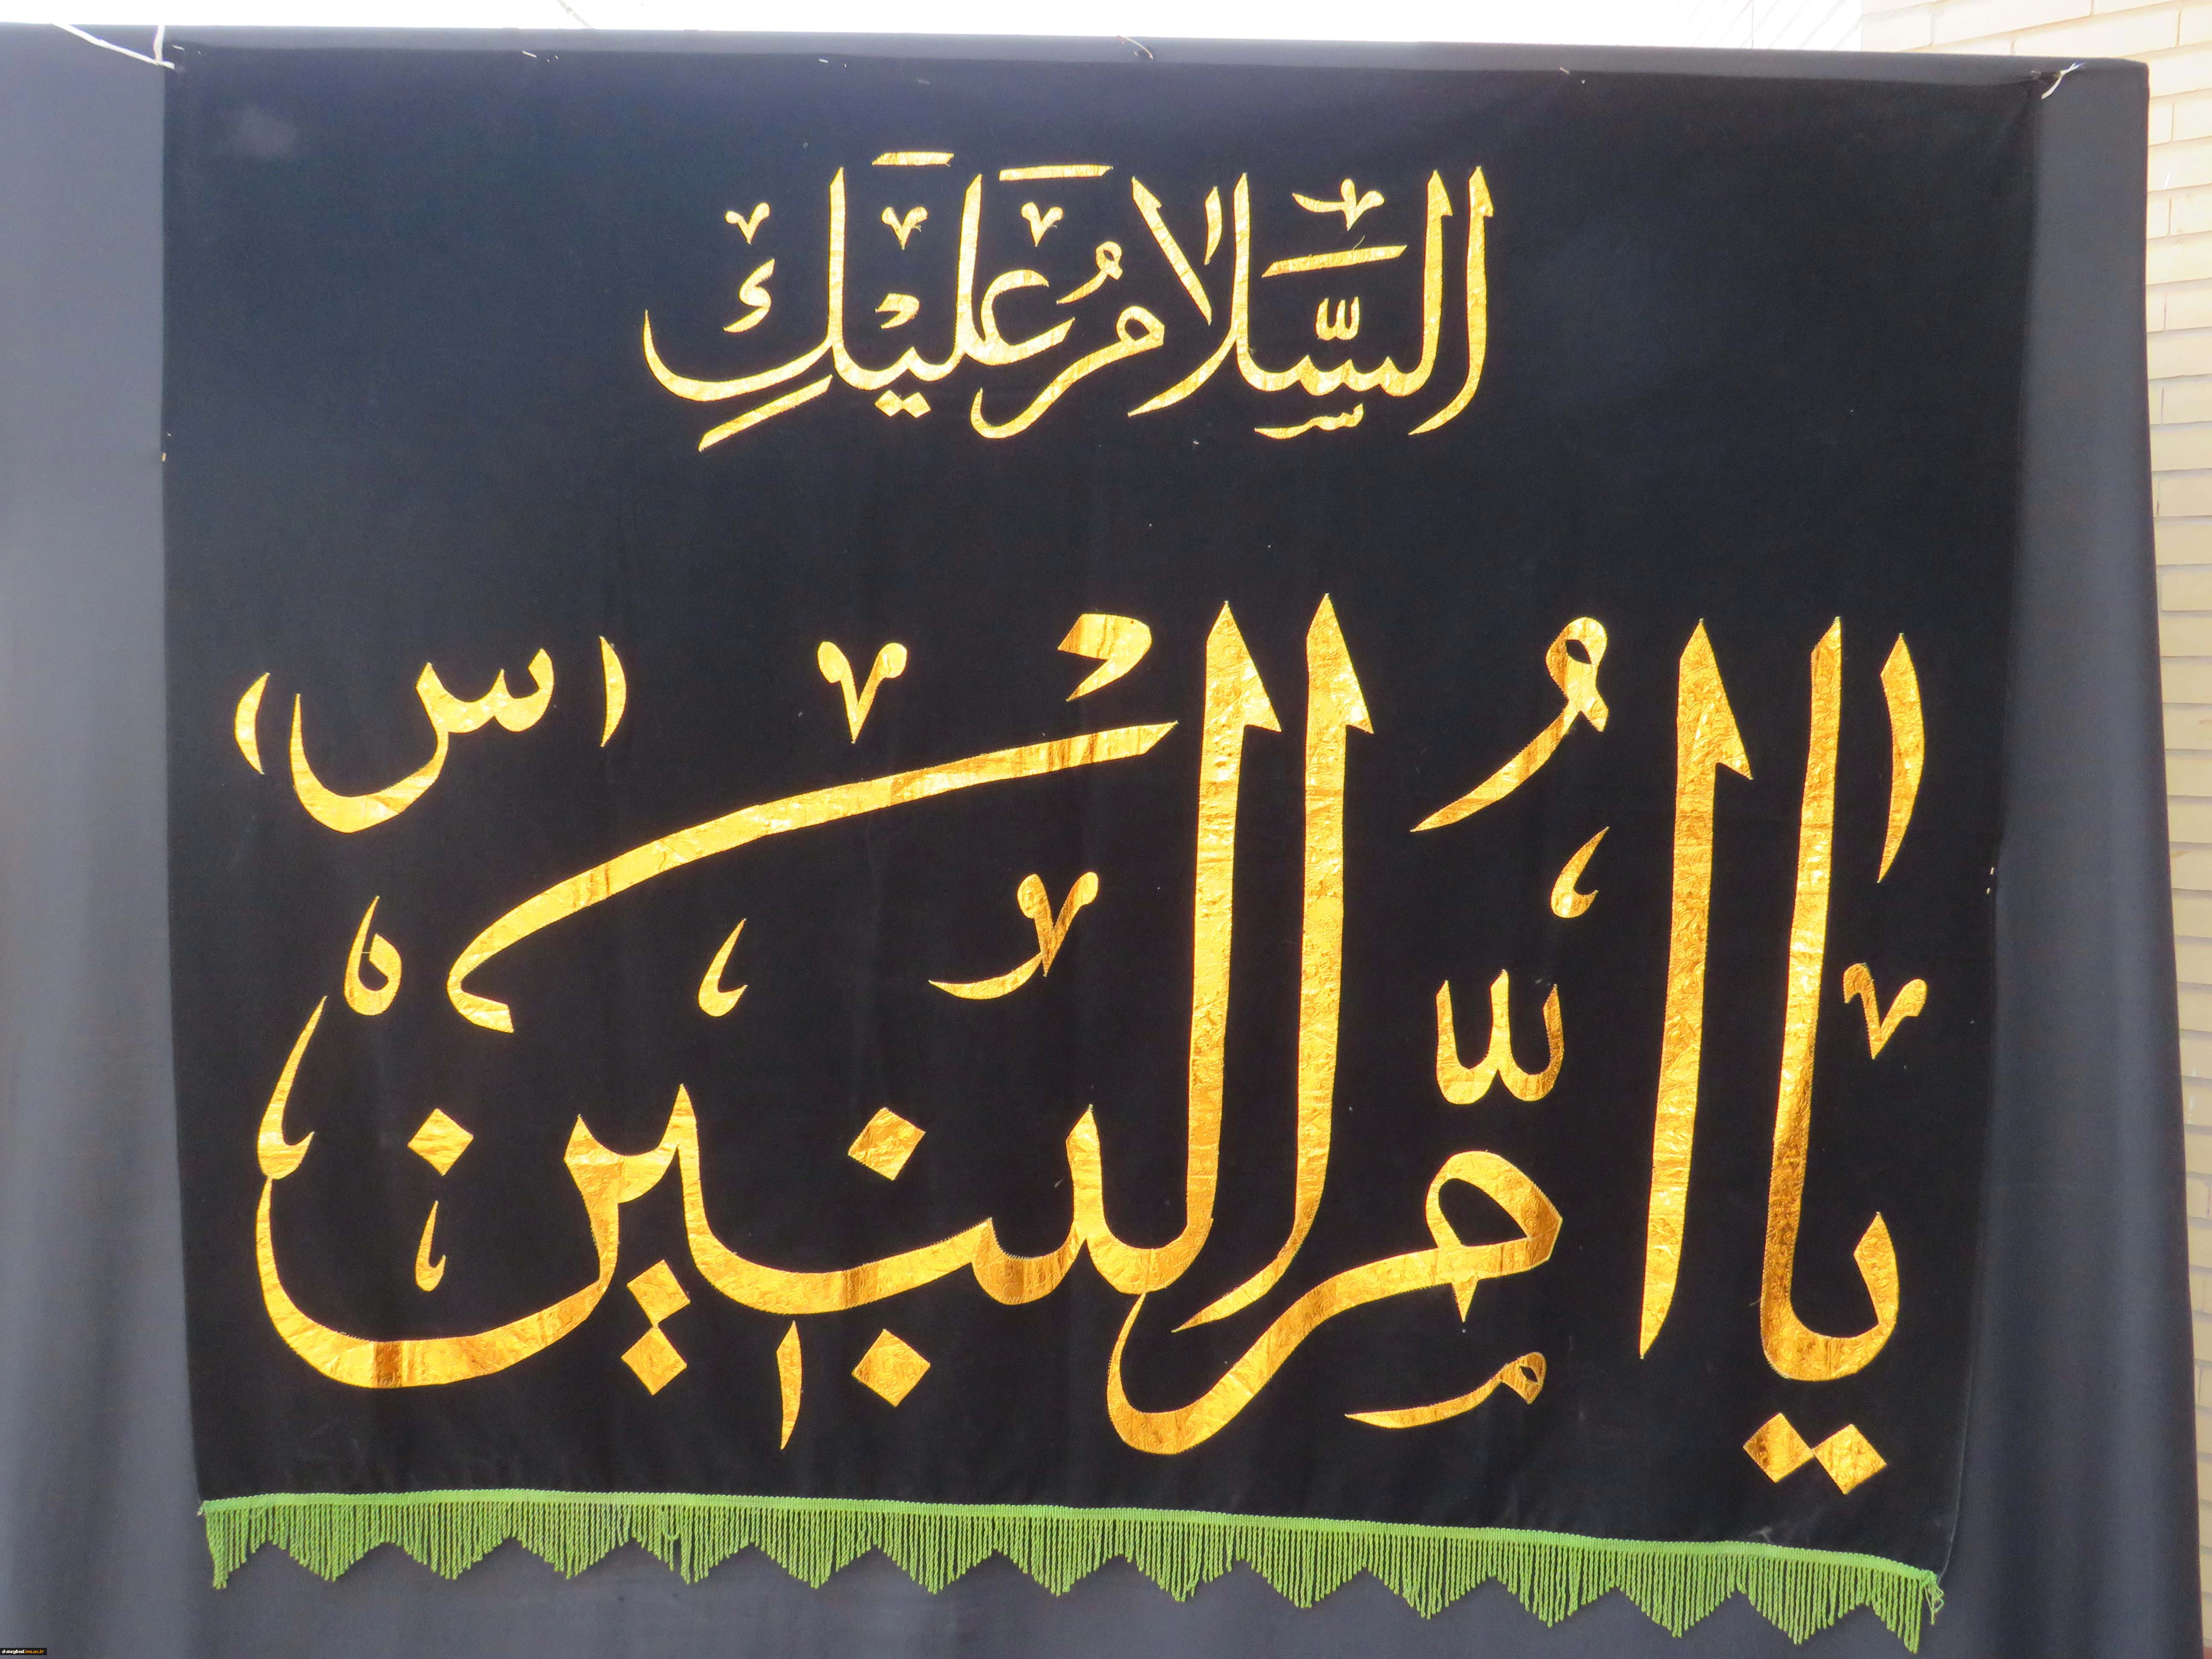 السَّلامُ عَلَیْكِ
یا اُمَّ الْبَنینَ (س)